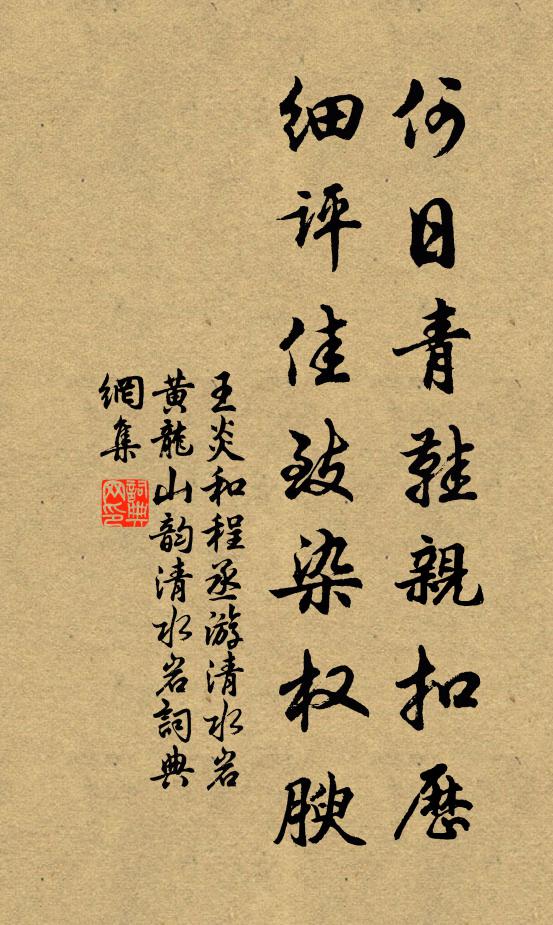 何日青鞋親扣歷
細評佳致染权腴
王炎和程丞游清水岩
黄龍山韵清水岩詞典
網集
詞典
网印